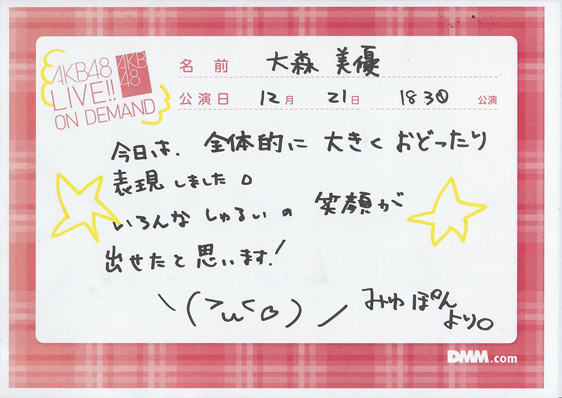 AKB48
LIVE!!
ON DEMAND
AKB
48
名前 大森 美優
公演日 12月 21日 1830 公演
今日は、全体的に大きくおどったり
表現しました。
いろんなしゅるいの笑顔が
出せたと思います!
みゆぽんより。
DMM.com